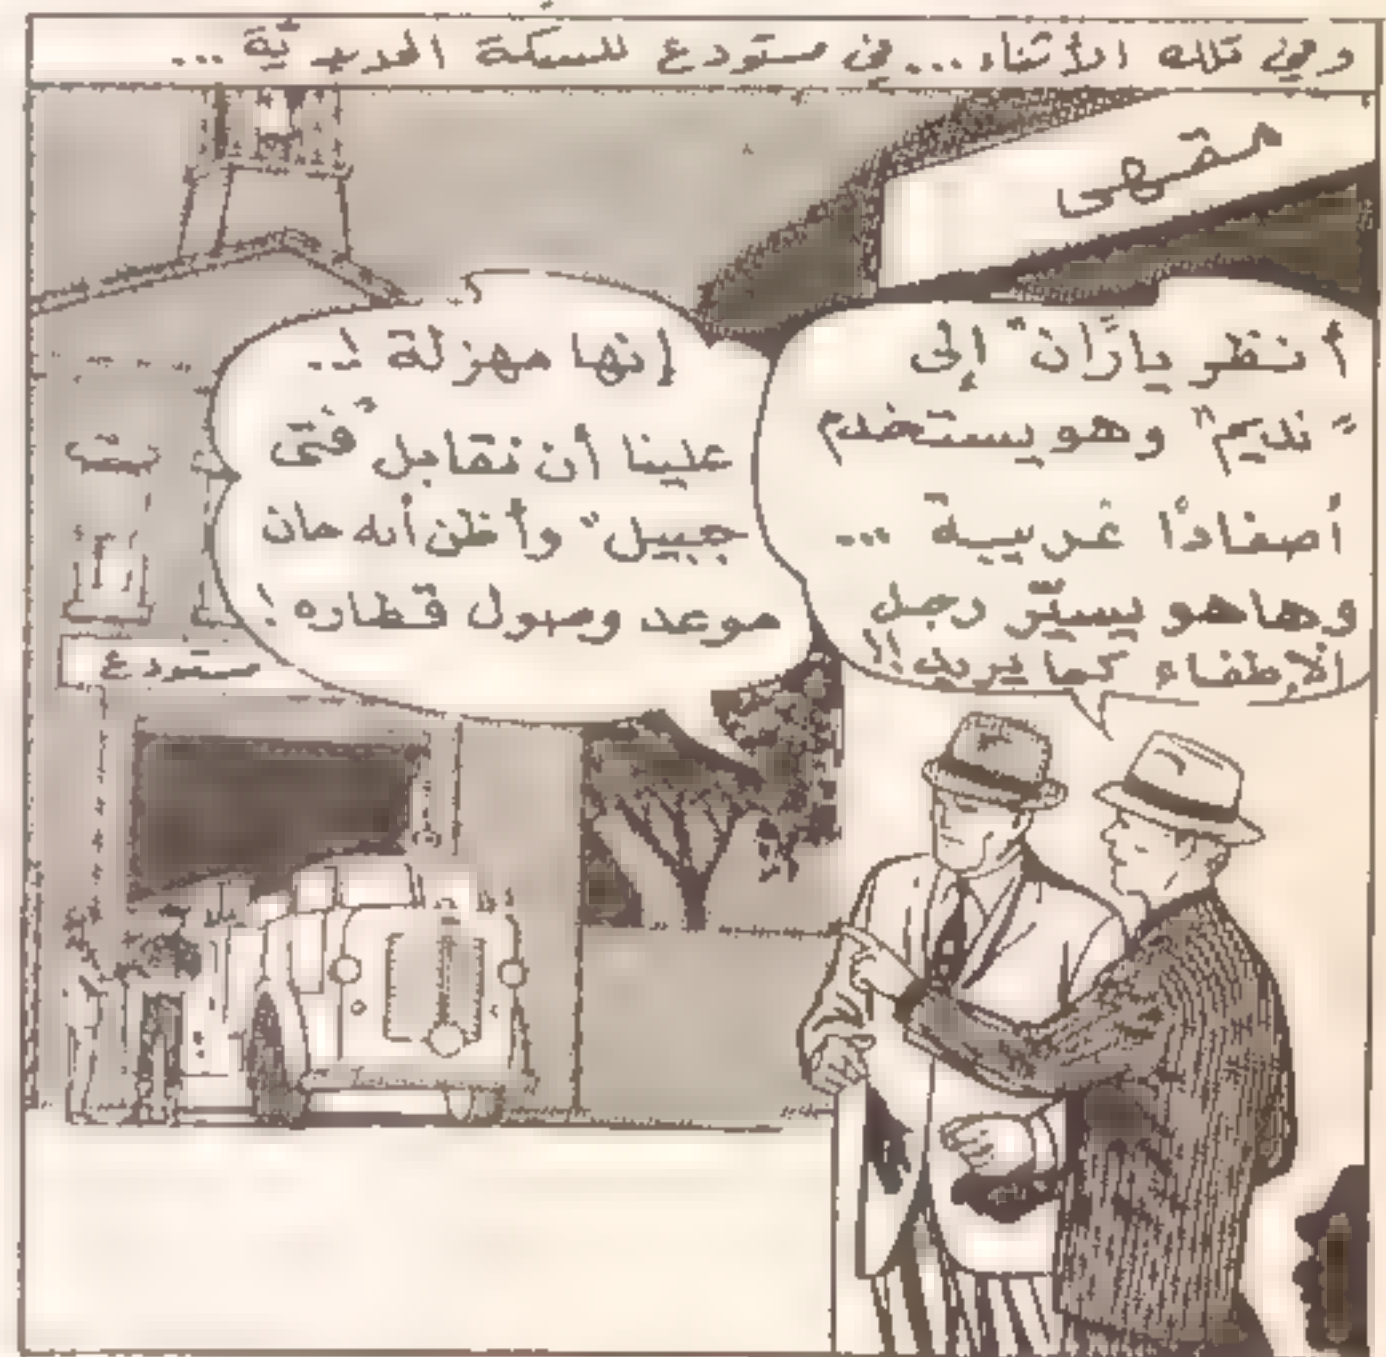 وفي تلك الأثناء... في مستودع للسكة الحديديّة ...
مقهى
أنظر يا "ران" إلى
"نديم" وهو يستخدم
أصفادًا غريبة ...
وها هو يسيّر رجل
الإطفاء كما يريد!!
إنها مهزلة !..
علينا أن نقابل "فتى
جبيل" وأظن أنه حان
موعد وصول قطاره !
مستودع